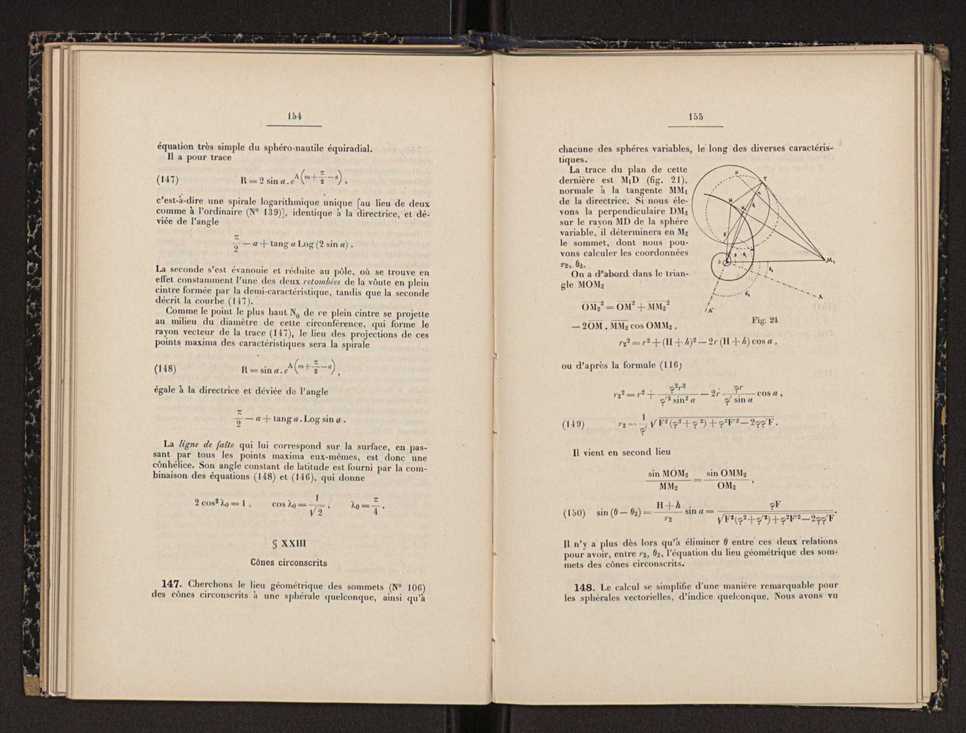 154
équation très simple du sphéro-nautile équiradial.
Il a pour trace
(147) R = 2 sin a . e^{A(m + π/2 − a)} ,
c'est-à-dire une spirale logarithmique unique [au lieu de deux
comme à l'ordinaire (N° 139)], identique à la directrice, et dé-
viée de l'angle
π/2 — a + tang a Log (2 sin a) .
La seconde s'est évanouie et réduite au pôle, où se trouve en
effet constamment l'une des deux retombées de la voûte en plein
cintre formée par la demi-caractéristique, tandis que la seconde
décrit la courbe (147).
Comme le point le plus haut N₀ de ce plein cintre se projette
au milieu du diamètre de cette circonférence, qui forme le
rayon vecteur de la trace (147), le lieu des projections de ces
points maxima des caractéristiques sera la spirale
(148) R = sin a . e^{A(m + π/2 − a)} ,
égale à la directrice et déviée de l'angle
π/2 — a + tang a . Log sin a .
La ligne de faîte qui lui correspond sur la surface, en pas-
sant par tous les points maxima eux-mêmes, est donc une
cônhélice. Son angle constant de latitude est fourni par la com-
binaison des équations (148) et (146), qui donne
2 cos² λ₀ = 1 , cos λ₀ = 1/√2 , λ₀ = π/4 .
§ XXIII
Cônes circonscrits
147. Cherchons le lieu géométrique des sommets (N° 106)
des cônes circonscrits à une sphérale quelconque, ainsi qu'à
155
chacune des sphères variables, le long des diverses caractéris-
tiques.
La trace du plan de cette
dernière est M₁D (fig. 21),
normale à la tangente MM₁
de la directrice. Si nous éle-
vons la perpendiculaire DM₂
sur le rayon MD de la sphère
variable, il déterminera en M₂
le sommet, dont nous pou-
vons calculer les coordonnées
r₂, θ₂.
On a d'abord dans le trian-
gle MOM₂
OM₂² = OM² + MM₂²
— 2OM . MM₂ cos OMM₂ ,
Fig. 21
r₂² = r² + (H + h)² — 2r (H + h) cos a ,
ou d'après la formule (116)
r₂² = r² + φ²r²/(φ'² sin² a) — 2r φr/(φ' sin a) cos a ,
(149) r₂ = 1/φ' √(F² (φ² + φ'²) + φ²F'² — 2φφ'F) .
Il vient en second lieu
sin MOM₂/MM₂ = sin OMM₂/OM₂ ,
(150) sin (θ — θ₂) = (H + h)/r₂ sin a = φF/√(F²(φ² + φ'²) + φ²F'² — 2φφ'F) .
Il n'y a plus dès lors qu'à éliminer θ entre ces deux relations
pour avoir, entre r₂, θ₂, l'équation du lieu géométrique des som-
mets des cônes circonscrits.
148. Le calcul se simplifie d'une manière remarquable pour
les sphérales vectorielles, d'indice quelconque. Nous avons vu